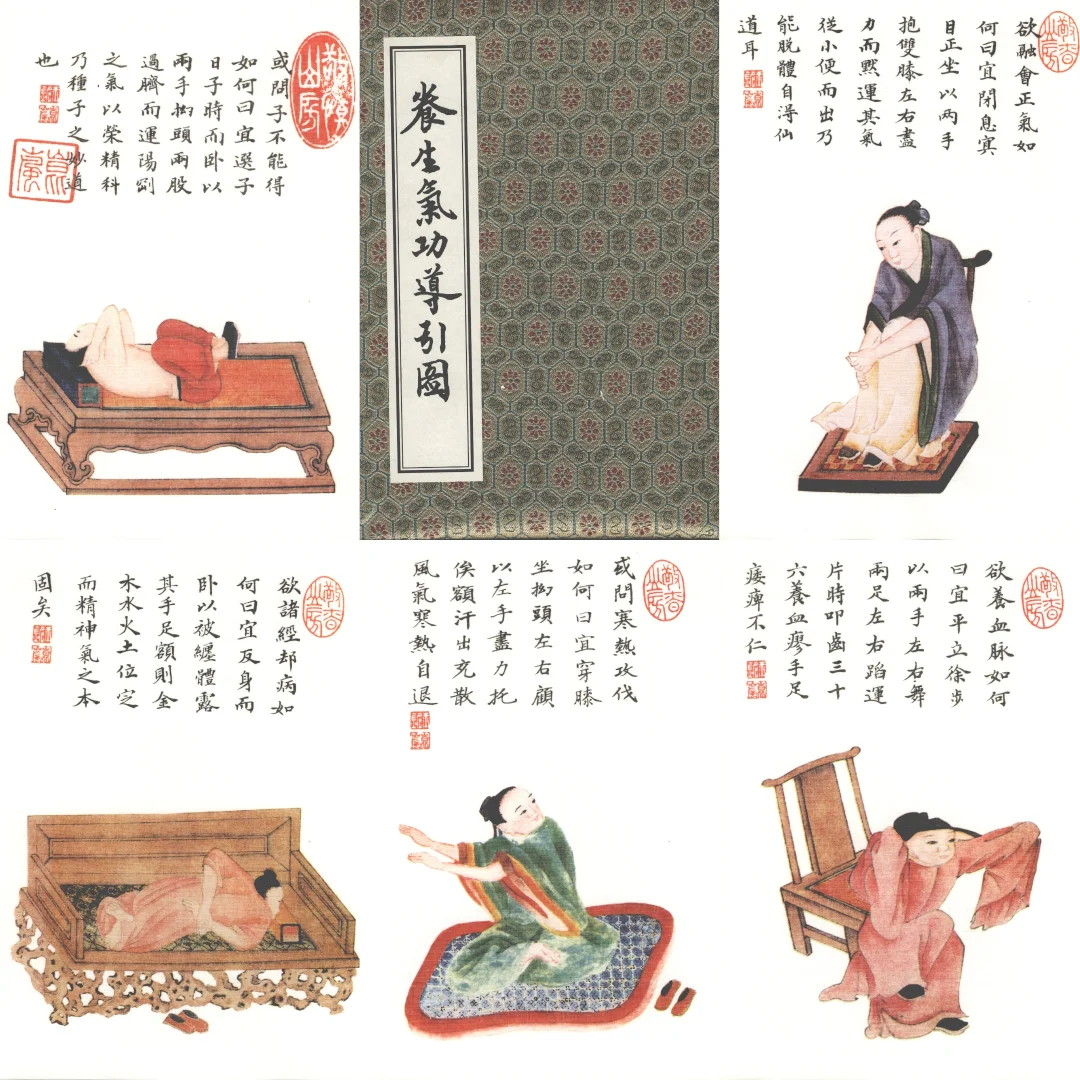 敬慎山房
或問子不能得
如何曰宜選子
日子時而卧以
兩手抝頭兩股
過臍而運陽
之氣以榮精科
乃種子之妙道
也
養生氣功導引圖
欲融會正氣如
何曰宜閉息冥
目正坐以两手
抱雙膝左右盡
力而黙運其氣
從小便而出乃
能脱體自淂仙
道耳
欲諸經却病如
何曰宜反身而
卧以被纏體露
其手足額則金
木水火土位定
而精神氣之本
固矣
或問寒熱攻伐
如何曰宜穿膝
坐抝頭左右顧
以左手盡力托
俟額汗出充散
風氣寒熱自退
欲養血脉如何
曰宜平立徐步
以兩手左右舞
兩足左右蹈運
片時叩齒三十
六養血廖手足
痿痺不仁